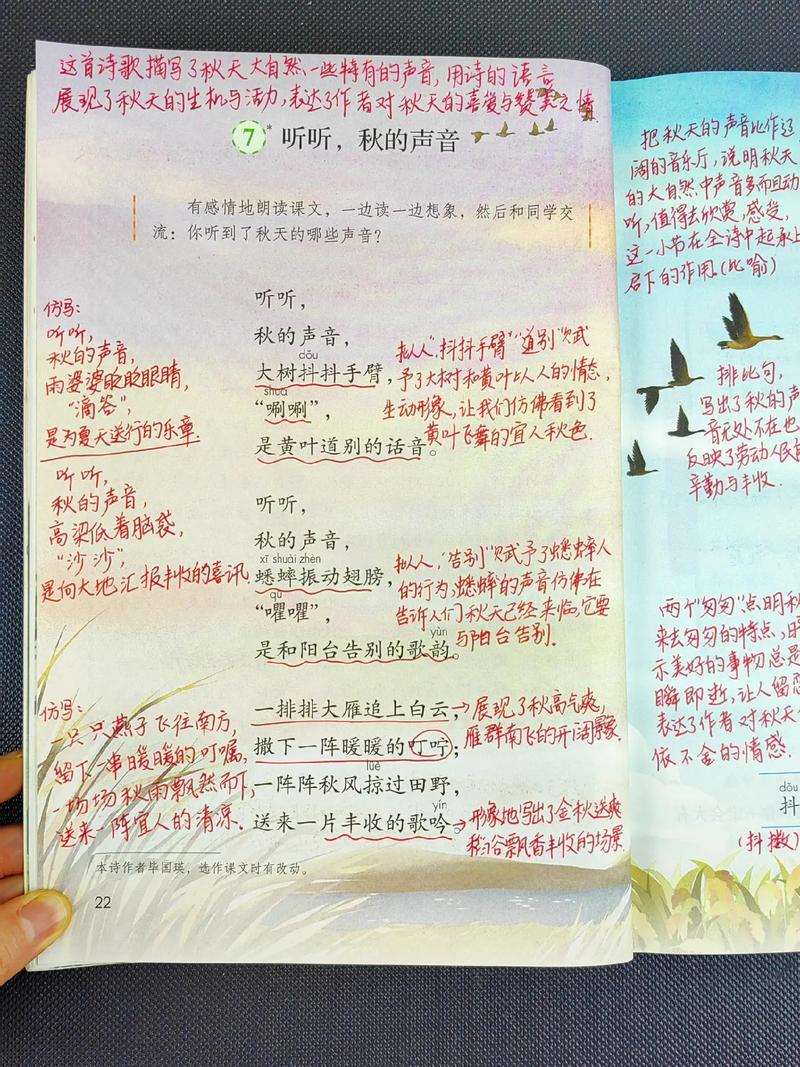 这首诗歌描写了秋天大自然一些特有的声音,用诗的语言
展现了秋天的生机与活力,表达了作者对秋天的喜爱与赞美之情
7* 听听，秋的声音
有感情地朗读课文，一边读一边想象，然后和同学交
流：你听到了秋天的哪些声音？
听听，
秋的声音，
dǒu
大树抖抖手臂，
shuā
“唰唰”，
是黄叶道别的话音。
听听，
秋的声音，
xī shuài zhèn
蟋蟀振动翅膀，
qú
“㘗㘗”，
yùn
是和阳台告别的歌韵。
一排排大雁追上白云，
撒下一阵暖暖的叮咛；
lüè
一阵阵秋风掠过田野，
yín
送来一片丰收的歌吟。
本诗作者毕国瑛，选作课文时有改动。
22
仿写:
听听,
秋的声音,
雨婆婆眨眨眼睛,
“滴答”,
是为夏天送行的乐章.
听听,
秋的声音,
高粱低着脑袋,
“沙沙”,
是向大地汇报丰收的喜讯
仿写:
一只只燕子飞往南方,
留下一串暖暖的叮嘱,
一场场秋雨飘然而下,
送来一阵宜人的清凉.
拟人“抖抖手臂”“道别”赋
予了大树和黄叶以人的情态,
生动形象,让我们仿佛看到了
黄叶飞舞的宜人秋色.
拟人,“告别”赋予了蟋蟀人
的行为,蟋蟀的声音仿佛在
告诉人们秋天已经来临,它要
与阳台告别.
展现了秋高气爽,
雁群南飞的开阔景象.
形象地写出了金秋送爽
稻谷飘香丰收的场景
把秋天的声音比作辽
阔的音乐厅,说明秋天
的大自然中声音多而且动
听,值得去欣赏,感受,
这一小节在全诗中起承上
启下的作用.(比喻)
排比句,
写出了秋的声
音无处不在也
反映了劳动人民的
辛勤与丰收.
两个“匆匆”点明秋
来去匆匆的特点,暗
示美好的事物总是
瞬即逝,让人留恋
表达了作者对秋天
依依不舍的情感.
dǒu
抖
(抖擞)